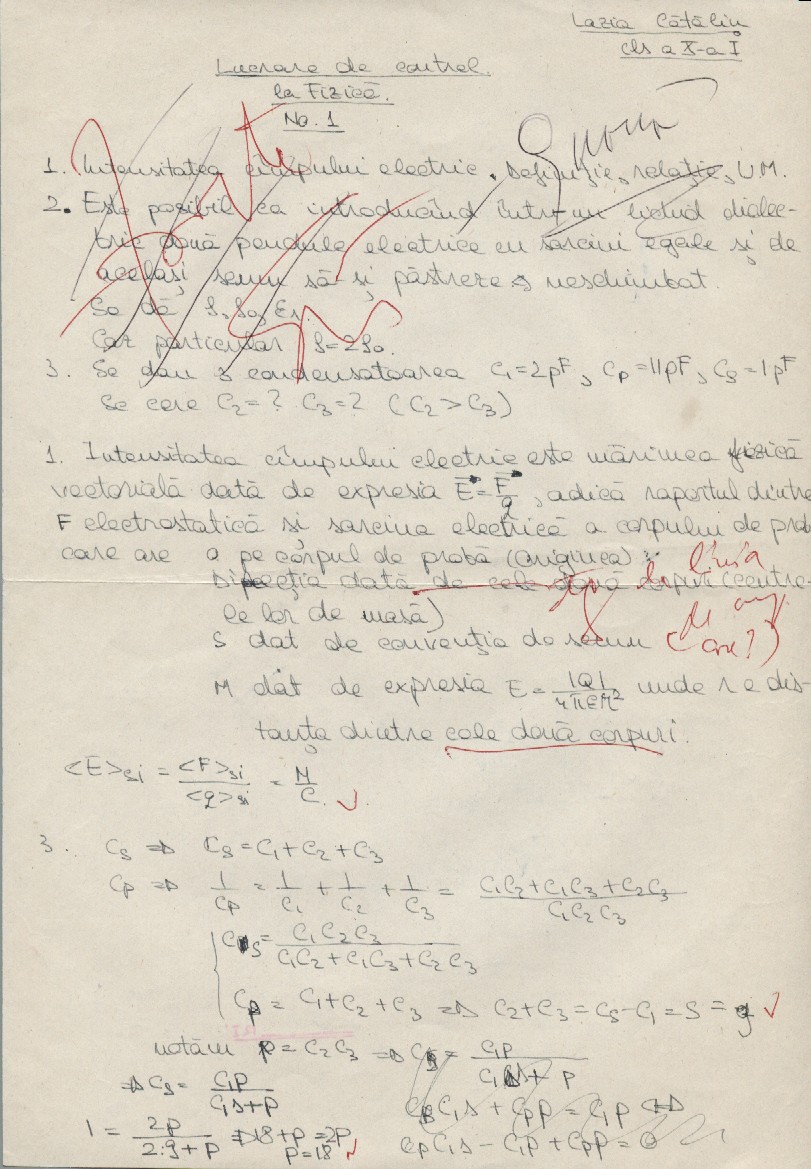 Lazia Cătălin
cls a X-a I
Lucrare de control
la Fizică.
No. 1
1. Intensitatea cîmpului electric. Definiție, relație, U.M.
2. Este posibil ca introducînd într-un lichid dielec-
tric două pendule electrice cu sarcini egale și de
același semn să-și păstreze neschimbat.
Se dă ρ, ρ₀, εr.
Caz particular ρ=2ρ₀.
3. Se dau 3 condensatoarea C₁=2pF, Cp=11pF, Cs=1pF
Se cere C₂=? C₃=? (C₂>C₃)
1. Intensitatea cîmpului electric este mărimea fizică
vectorială dată de expresia E=F/q, adică raportul dintre
F electrostatică și sarcina electrică a corpului de prob
care are o pe corpul de probă (originea)
Direcția dată de cele două corpuri (centre-
le lor de masă)
linia
S dat de convenția de semn (care?)
M dat de expresia E = |Q|/4πεr² unde r e dis-
tanța dintre cele două corpuri.
<E>si = <F>si/<q>si = N/C
3. Cs ⇒ Cs = C₁+C₂+C₃
Cp ⇒ 1/Cp = 1/C₁ + 1/C₂ + 1/C₃ = C₁C₂+C₁C₃+C₂C₃/C₁C₂C₃
Cs = C₁C₂C₃/C₁C₂+C₁C₃+C₂C₃
Cp = C₁+C₂+C₃ ⇒ C₂+C₃=Cs-C₁=S=9
notăm p=C₂C₃ ⇒ Cs = C₁p/C₁s+p
⇒ Cs = C₁p/C₁s+p
CpC₁s + Cpp = C₁p ⇔
1 = 2p/2·9+p ⇒ 18+p=2p
p=18
CpC₁s - C₁p + Cpp = 0